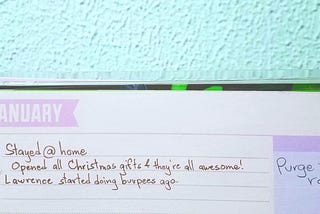 ANUARY
Stayed @ home
Opened all Christmas gifts & they're all awesome!
Lawrence started doing burpees ago.
Purge